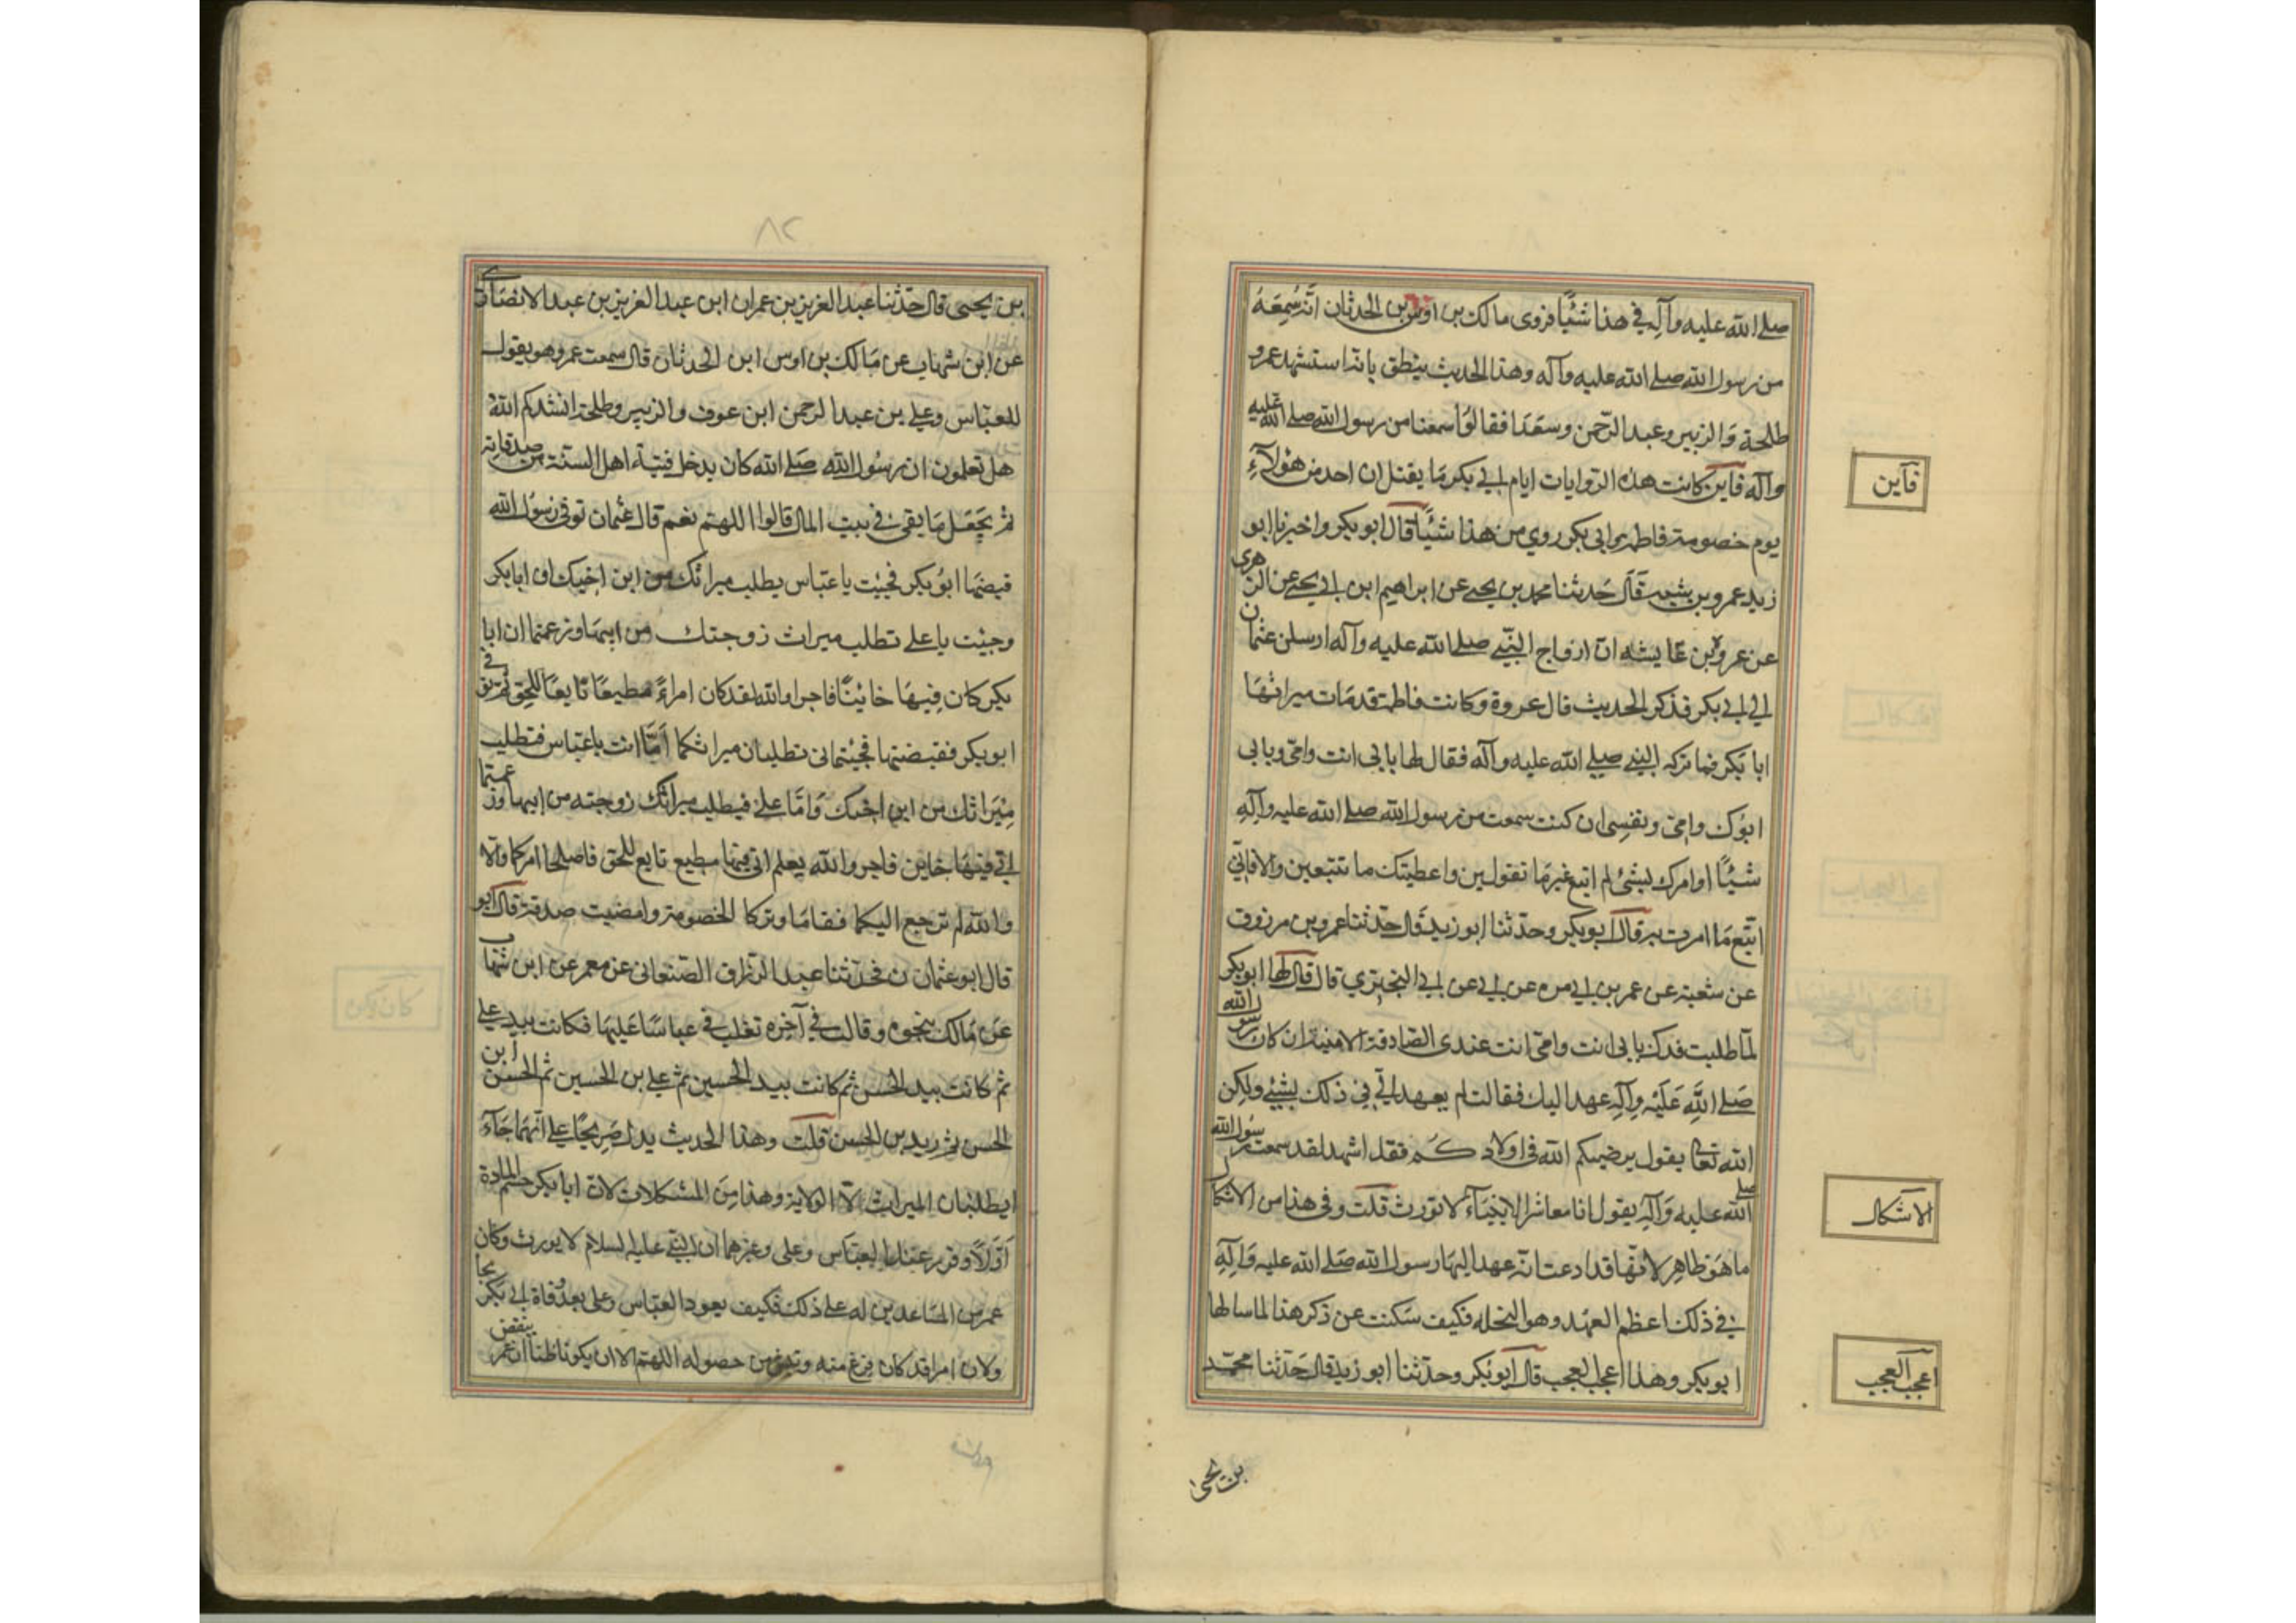 صلى الله عليه وآله في هذا شيئًا فروى مالك بن اوس بن الحدثان انه سمعه
من رسول الله صلى الله عليه وآله وهذا الحديث ينطق بانه استشهد عمرو
طلحة والزبير وعبد الرحمن وسعدا فقالوا سمعنا من رسول الله صلى الله عليه
وآله فاين كانت هذه الروايات ايام ابي بكر ما يقتل ان احد من هؤلآء
يوم خصومة فاطمة وابي بكر روي من هذا شيئًا قال ابو بكر واخبرنا ابو
زيد عمرو بن قال حدثنا محمد بن يحيى عن ابراهيم ابن ابي يحيى عن الزهري
عن عروة بن عايشه ان ازواج النبي صلى الله عليه وآله ارسلن عثمان
الى ابي بكر فذكر الحديث قال عروة وكانت فاطمة قد مات ميراثها
ابا بكر فما تركه النبي صلى الله عليه وآله فقال لها بابي انت وامي وبابي
ابوك وامي ونفسي ان كنت سمعت من رسول الله صلى الله عليه وآله
شيئًا او امرك بشئ لم اتبع غير ما تقولين واعطيتك ما تتبعين والا فاني
اتبع ما امرت به قال ابو بكر وحدثنا ابو زيد قال حدثنا عمرو بن مرزوق
عن شعبة عن عمر بن ابي مره عن ابي عن ابي البختري قال قال لها ابو بكر
لما طلبت فدك بابي انت وامي انت عندي الصادقة الامينة ان كان رسول الله
صلى الله عليه وآله عهد اليك فقالت لم يعهد الي في ذلك بشيء ولكن
الله تعالى يقول يوصيكم الله في اولادكم فقل اشهد لقد سمعت رسول الله
صلى الله عليه وآله يقول انا معاشر الانبياء لا نورث قلت وفي هذا من الاشكال
ما هو ظاهر لانها قد ادعت انه عهد اليها رسول الله صلى الله عليه وآله
في ذلك اعظم العهد وهو النحله فكيف سكنت عن ذكر هذا لما سالها
ابو بكر وهذا اعجب العجب قال ابو بكر وحدثنا ابو زيد قال حدثنا محمد
بن يحيى
فآين
الاشكال
اعجب العجب
٨٢
بن يحيى قال حدثنا عبد العزيز بن عمران ابن عبد العزيز بن عبد الانصارى
عن ابن شهاب عن مالك بن اوس ابن الحدثان قال سمعت عمر وهو يقول
للعباس وعلي بن عبد الرحمن ابن عوف والزبير وطلحة انشدكم الله
هل تعلمون ان رسول الله صلى الله كان يدخل اهل السنة من صدقاته
ثم يجعل ما بقى في بيت المال قالوا اللهم نعم قال عثمان توفى رسول الله
قبضها ابو بكر فجيت يا عباس يطلب ميراثك من ابن اخيك اى ابابكر
وجيت يا على تطلب ميراث زوجتك من ابيها وزعمتما ان ابا
بكر كان فيها خائنًا فاجرا والله لقد كان امراءً مطيعًا تابعًا للحق ثم توفي
ابو بكر فقبضتها فجئتماني تطلبان ميراثكما أمّا انت يا عباس فتطلب
ميراثك من ابن اخيك وامّا علي فيطلب ميراثك زوجته من ابيها وزعمتما
اني فيها خاين فاجر والله يعلم اني فيها مطيع تابع للحق فاصلحا امركما والآ
والله لم ترجع اليكما فقاما وتركا الخصومة وامضيت صدقة قال ابو
قال ابو عثمان ن فحدثنا عبد الرزاق الصنعاني عن معمر عن ابن شهاب
عن مالك بنحوه وقال في آخره تغلب في عباسًا عليها فكانت بيد علي
ثم كانت بيد الحسن ثم كانت بيد الحسين ثم علي بن الحسين ثم الحسن ابن
الحسن ثم زيد بن الحسن قلت وهذا الحديث يدل صريحًا على انهما جآء
ايطلبان الميراث لا الولاية وهذا من المشكلات لان ابا بكر حسم المادة
اوّلًا وقرر عند العباس وعلى وغيرهما ان النبي عليه السلام لا يورث وكان
عمر من المساعدين له على ذلك فكيف يعود العباس وعلى بعد وفاة ابي بكر
ولان امرا قد كان فرغ منه من حصوله اللهم الا ان يكونا ظنا ان عمر ينقض